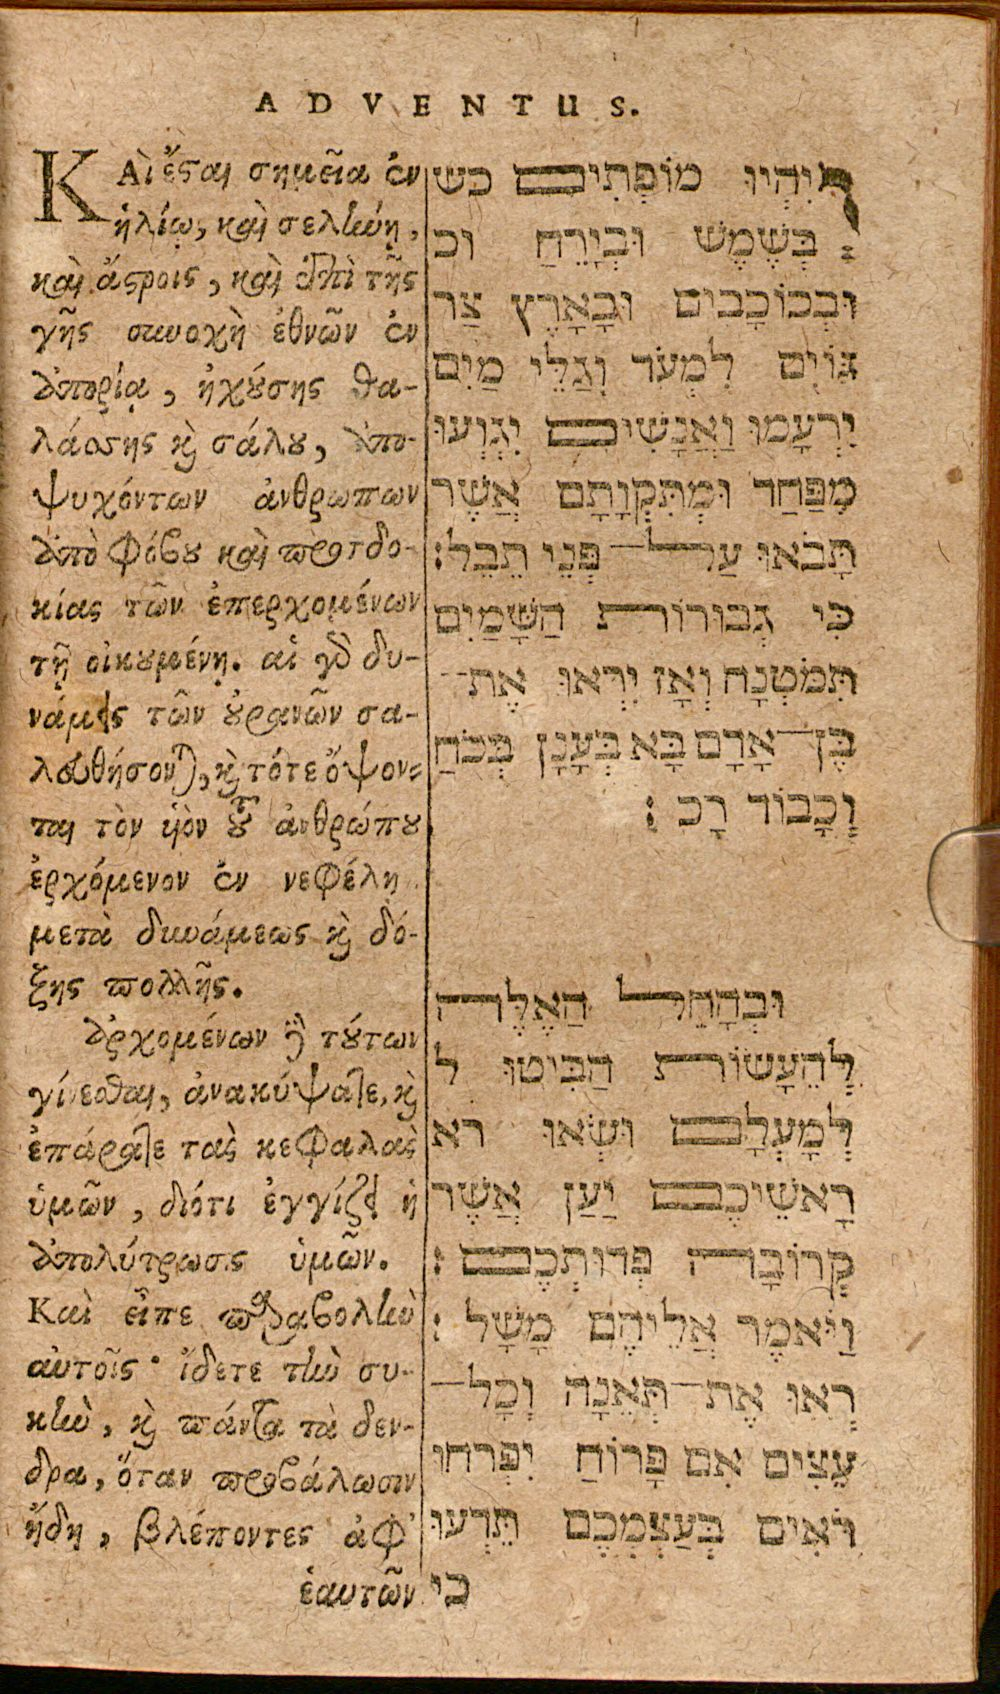 ADVENTUS.
ΚΑὶ ἔσται σημεῖα ἐν
ἡλίῳ, καὶ σελήνῃ,
καὶ ἄστροις, καὶ ἐπὶ τῆς
γῆς συνοχὴ ἐθνῶν ἐν
ἀπορίᾳ, ἠχούσης θα-
λάσσης καὶ σάλου, ἀπο-
ψυχόντων ἀνθρώπων
ἀπὸ φόβου καὶ προσδο-
κίας τῶν ἐπερχομένων
τῇ οἰκουμένῃ. αἱ γὰρ δυ-
νάμεις τῶν οὐρανῶν σα-
λευθήσονται, καὶ τότε ὄψον-
ται τὸν υἱὸν τοῦ ἀνθρώπου
ἐρχόμενον ἐν νεφέλῃ
μετὰ δυνάμεως καὶ δό-
ξης πολλῆς.
ἀρχομένων δὲ τούτων
γίνεσθαι, ἀνακύψατε, καὶ
ἐπάρατε τὰς κεφαλὰς
ὑμῶν, διότι ἐγγίζει ἡ
ἀπολύτρωσις ὑμῶν.
Καὶ εἶπε παραβολὴν
αὐτοῖς· ἴδετε τὴν συ-
κῆν, καὶ πάντα τὰ δεν-
δρα, ὅταν προβάλωσιν
ἤδη, βλέποντες ἀφ'
ἑαυτῶν
וְיִהְיוּ מוֹפְתִים כש
בְּשֶׁמֶשׁ וּבְיָרֵחַ וכ
וּבְכוֹכָבִים וּבָאָרֶץ צַר
גּוֹיִם לִמְעֹד וְגַלֵּי מַיִם
יִרְעָמוּ וַאֲנָשִׁים יִגְוְעוּ
מִפַּחַד וּמִתִּקְוָתָם אֲשֶׁר
תָּבֹאוּ עַל־ פְּנֵי תֵבֵל׃
כִּי גְבוּרוֹת הַשָּׁמַיִם
תִּמֹטְנָה וְאָז יִרְאוּ אֶת־
בֶּן־אָדָם בָּא בְּעָנָן בְּכֹחַ
וְכָבוֹד רָב׃
וּבְהָחֵל הָאֵלֶּה
לְהֵעָשׂוֹת הַבִּיטוּ ל
לְמָעְלָם וּשְׂאוּ רא
רָאשֵׁיכֶם יַעַן אֲשֶׁר
קְרוֹבָה פְּדוּתְכֶם׃
וַיֹּאמֶר אֲלֵיהֶם מָשָׁל׃
רְאוּ אֶת־תְּאֵנָה וְכָל־
עֵצִים אִם פָּרוֹחַ יִפְרחוּ
רֹאִים בְּעַצְמְכֶם תֵּדְעוּ
כי